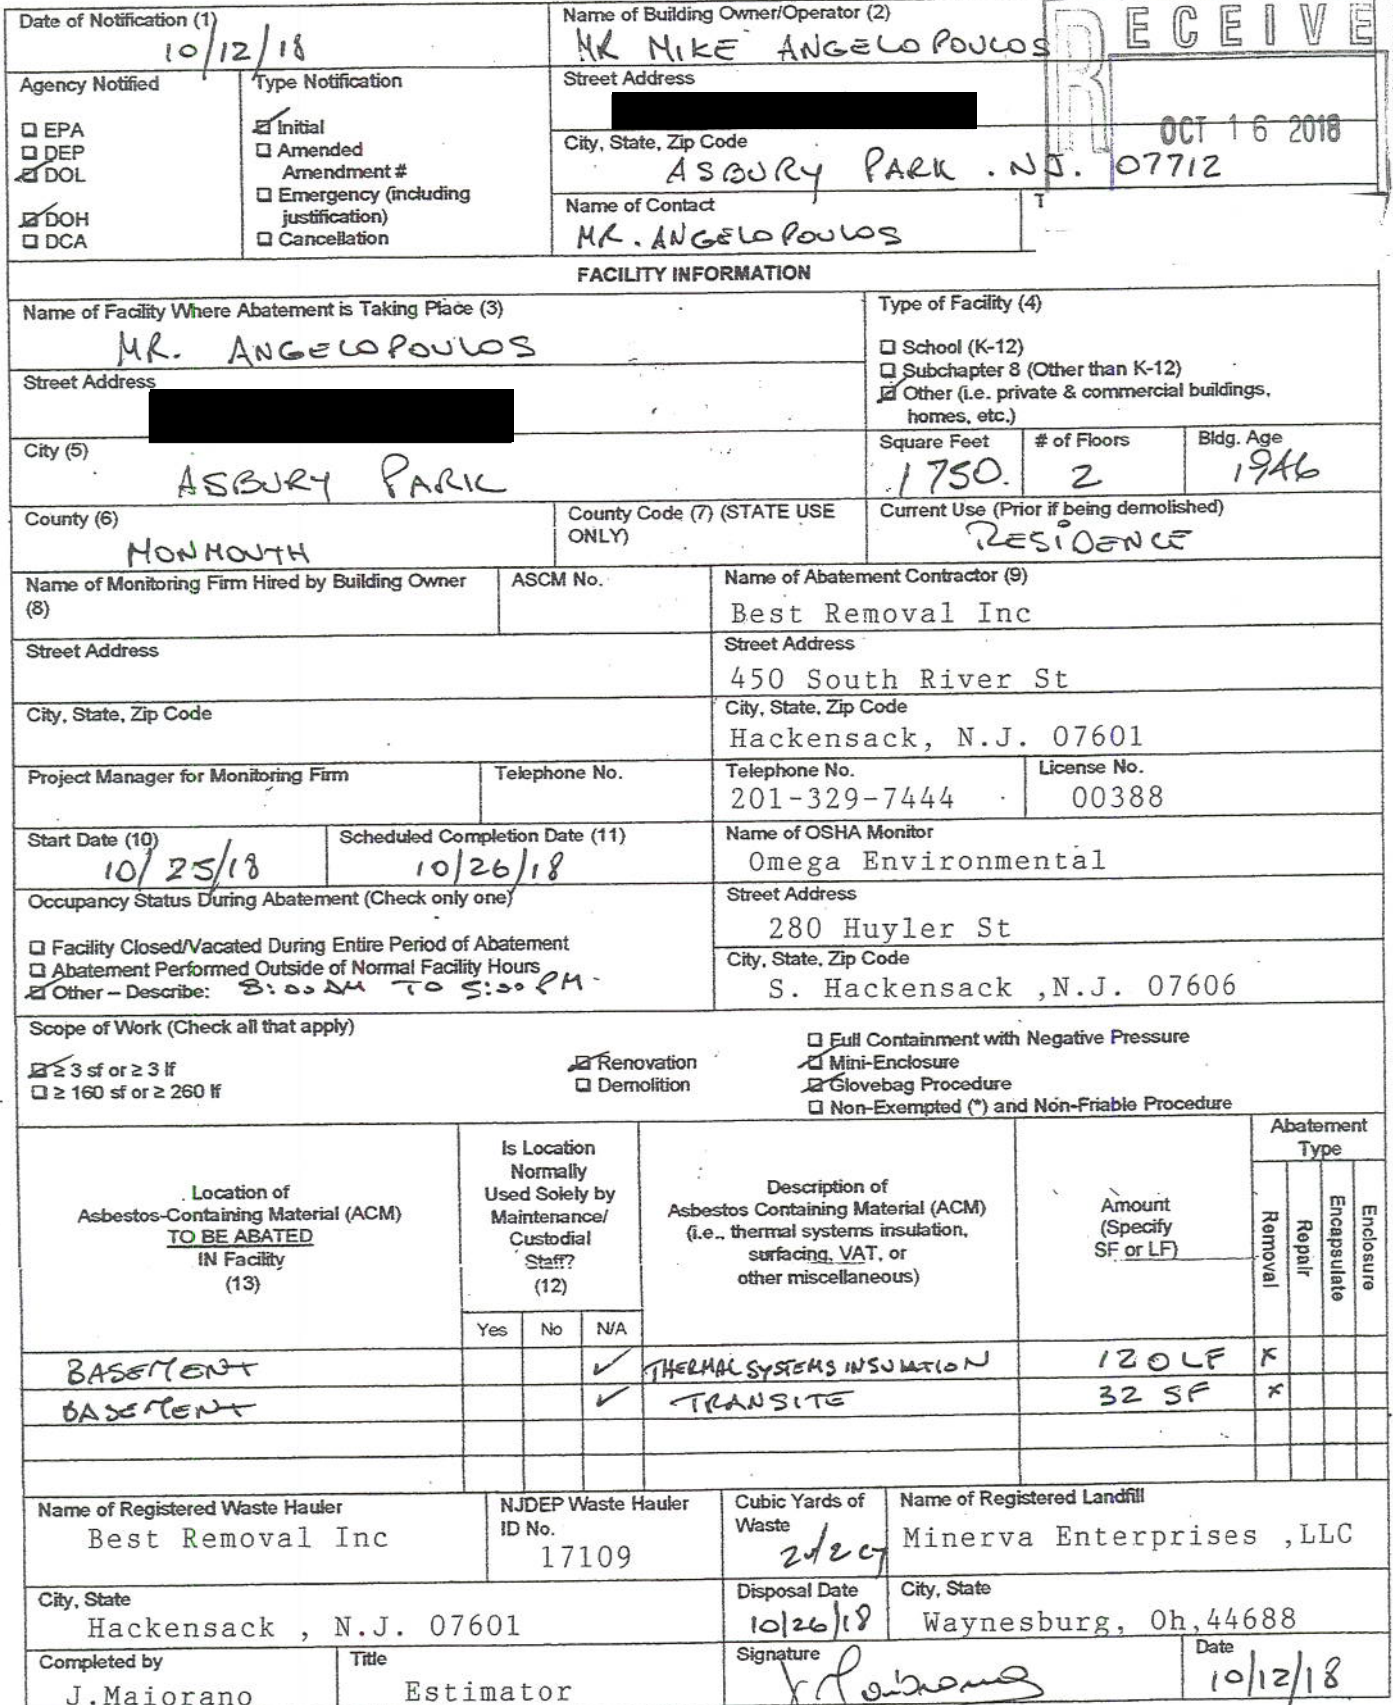 Date of Notification (1)
10/12/18
Name of Building Owner/Operator (2)
MR MIKE ANGELOPOULOS
RECEIVE
OCT 16 2018
Agency Notified
☐ EPA
☐ DEP
☑ DOL
☑ DOH
☐ DCA
Type Notification
☑ Initial
☐ Amended
Amendment #
☐ Emergency (including
justification)
☐ Cancellation
Street Address
City, State, Zip Code
ASBURY PARK . NJ. 07712
Name of Contact
MR. ANGELOPOULOS
T
FACILITY INFORMATION
Name of Facility Where Abatement is Taking Place (3)
MR. ANGELOPOULOS
Street Address
Type of Facility (4)
☐ School (K-12)
☐ Subchapter 8 (Other than K-12)
☑ Other (i.e. private & commercial buildings,
homes, etc.)
City (5)
ASBURY PARK
Square Feet
1750.
# of Floors
2
Bldg. Age
1946
County (6)
MONMOUTH
County Code (7) (STATE USE
ONLY)
Current Use (Prior if being demolished)
RESIDENCE
Name of Monitoring Firm Hired by Building Owner
(8)
ASCM No.
Name of Abatement Contractor (9)
Best Removal Inc
Street Address
Street Address
450 South River St
City, State, Zip Code
City, State, Zip Code
Hackensack, N.J. 07601
Project Manager for Monitoring Firm
Telephone No.
Telephone No.
201-329-7444
License No.
00388
Start Date (10)
10/25/18
Scheduled Completion Date (11)
10/26/18
Name of OSHA Monitor
Omega Environmental
Occupancy Status During Abatement (Check only one)
☐ Facility Closed/Vacated During Entire Period of Abatement
☐ Abatement Performed Outside of Normal Facility Hours
☑ Other – Describe: 8:00 AM TO 5:00 PM.
Street Address
280 Huyler St
City, State, Zip Code
S. Hackensack ,N.J. 07606
Scope of Work (Check all that apply)
☑ ≥ 3 sf or ≥ 3 lf
☐ ≥ 160 sf or ≥ 260 lf
☑ Renovation
☐ Demolition
☐ Full Containment with Negative Pressure
☑ Mini-Enclosure
☑ Glovebag Procedure
☐ Non-Exempted (*) and Non-Friable Procedure
Location of
Asbestos-Containing Material (ACM)
TO BE ABATED
IN Facility
(13)
Is Location
Normally
Used Solely by
Maintenance/
Custodial
Staff?
(12)
Yes No N/A
Description of
Asbestos Containing Material (ACM)
(i.e., thermal systems insulation,
surfacing, VAT, or
other miscellaneous)
Amount
(Specify
SF or LF)
Abatement
Type
Removal
Repair
Encapsulate
Enclosure
BASEMENT ✓ THERMAL SYSTEMS INSULATION 120 LF x
BASEMENT ✓ TRANSITE 32 SF x
Name of Registered Waste Hauler
Best Removal Inc
NJDEP Waste Hauler
ID No.
17109
Cubic Yards of
Waste
Name of Registered Landfill
Minerva Enterprises ,LLC
City, State
Hackensack , N.J. 07601
Disposal Date
10/26/18
City, State
Waynesburg, Oh,44688
Completed by
J.Maiorano
Title
Estimator
Signature
Date
10/12/18